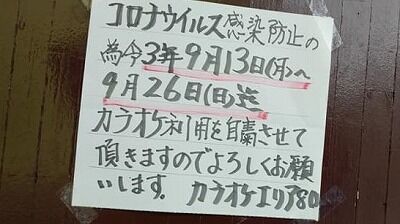 コロナウイルス感染防止の
為令3年9月13日(月)〜
9月26日(日)迄
カラオケ利用を自粛させて
頂きますのでよろしくお願
いします。カラオケエリア80